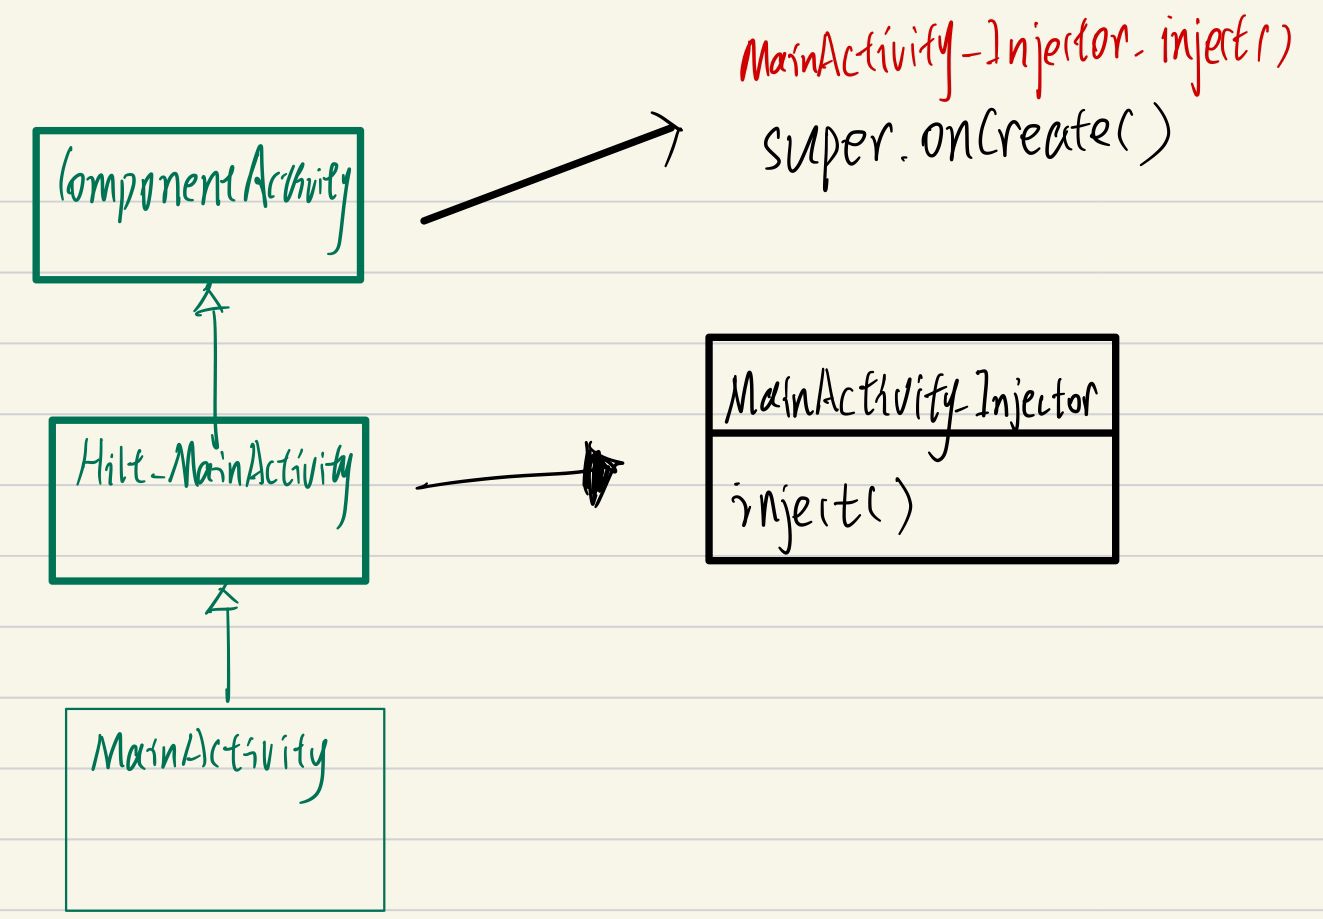 MainActivity_Injector.inject()
super.onCreate()
ComponentActivity
MainActivity_Injector
Hilt_MainActivity
inject()
MainActivity